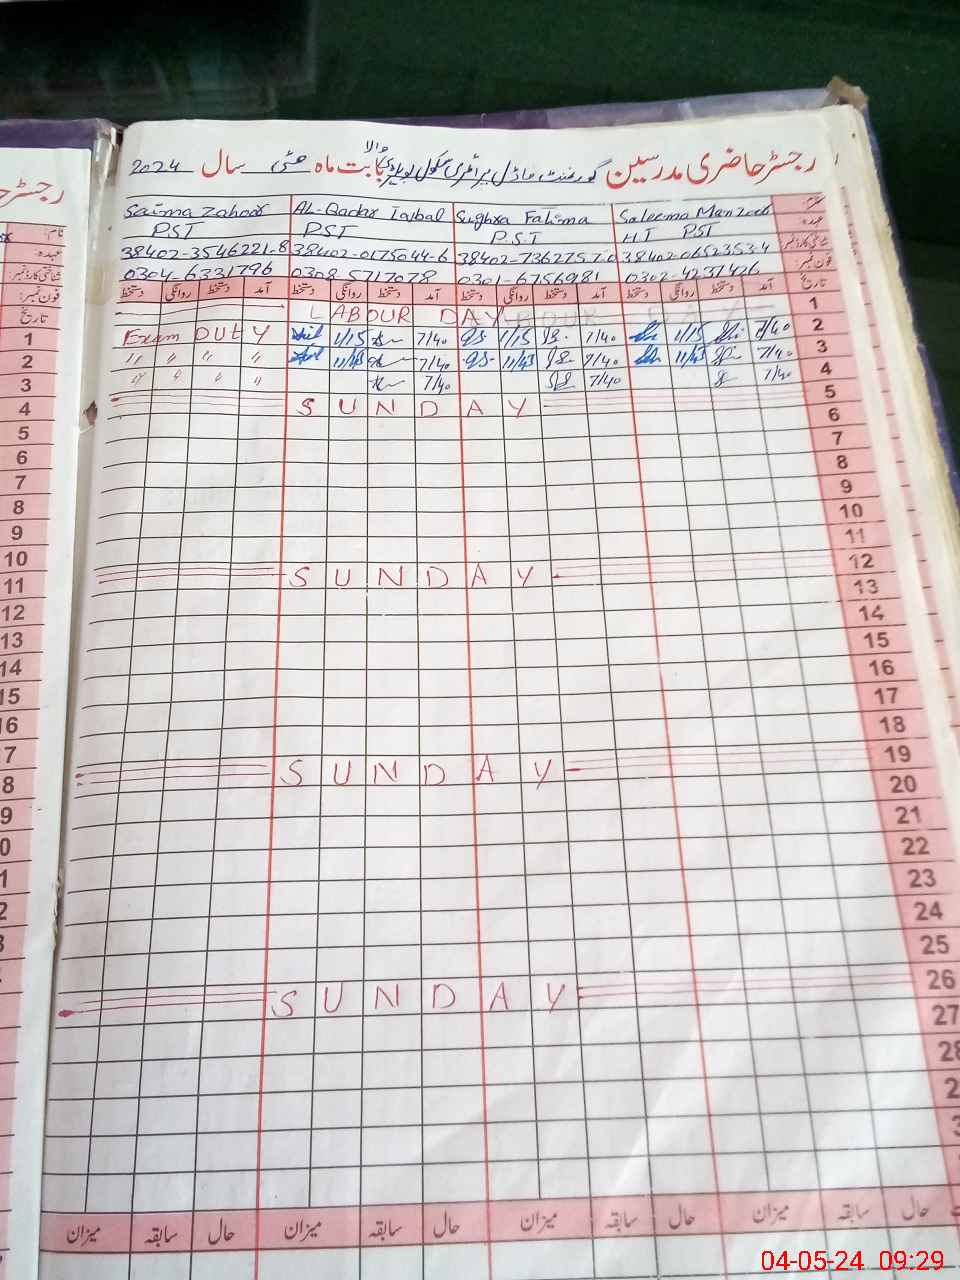 رجسٹر حاضری مدرسین گورنمنٹ ماڈل پرائمری سکول بابت ماہ مئی سال 2024
Saima Zahoor AL-Qadar Iqbal Sughra Fatima Saleema Manzoor
PST PST P.S.T HT PST
نام:
عہدہ
شناختی کارڈ نمبر:
فون نمبر:
تاریخ
38402-3546221-8 38402-0175044-6 38402-7362757-0 38402-0652353-4
0304-6331796 0308-5717078 0301-6756981 0302-4237426
دستخط روانگی دستخط آمد دستخط روانگی دستخط آمد دستخط روانگی دستخط آمد دستخط روانگی دستخط آمد تاریخ
LABOUR DAY 1
Exam DUTY 1/15 7/40 1/15 7/40 1/15 7/40 2
" " " " 11/45 7/40 11/45 7/40 11/45 7/40 3
" " " " 7/40 7/40 7/40 4
SUNDAY 5
6
7
8
9
10
11
SUNDAY 12
13
14
15
16
17
18
SUNDAY 19
20
21
22
23
24
25
SUNDAY 26
27
28
میزان سابقہ حال میزان سابقہ حال میزان سابقہ حال میزان سابقہ حال
04-05-24 09:29